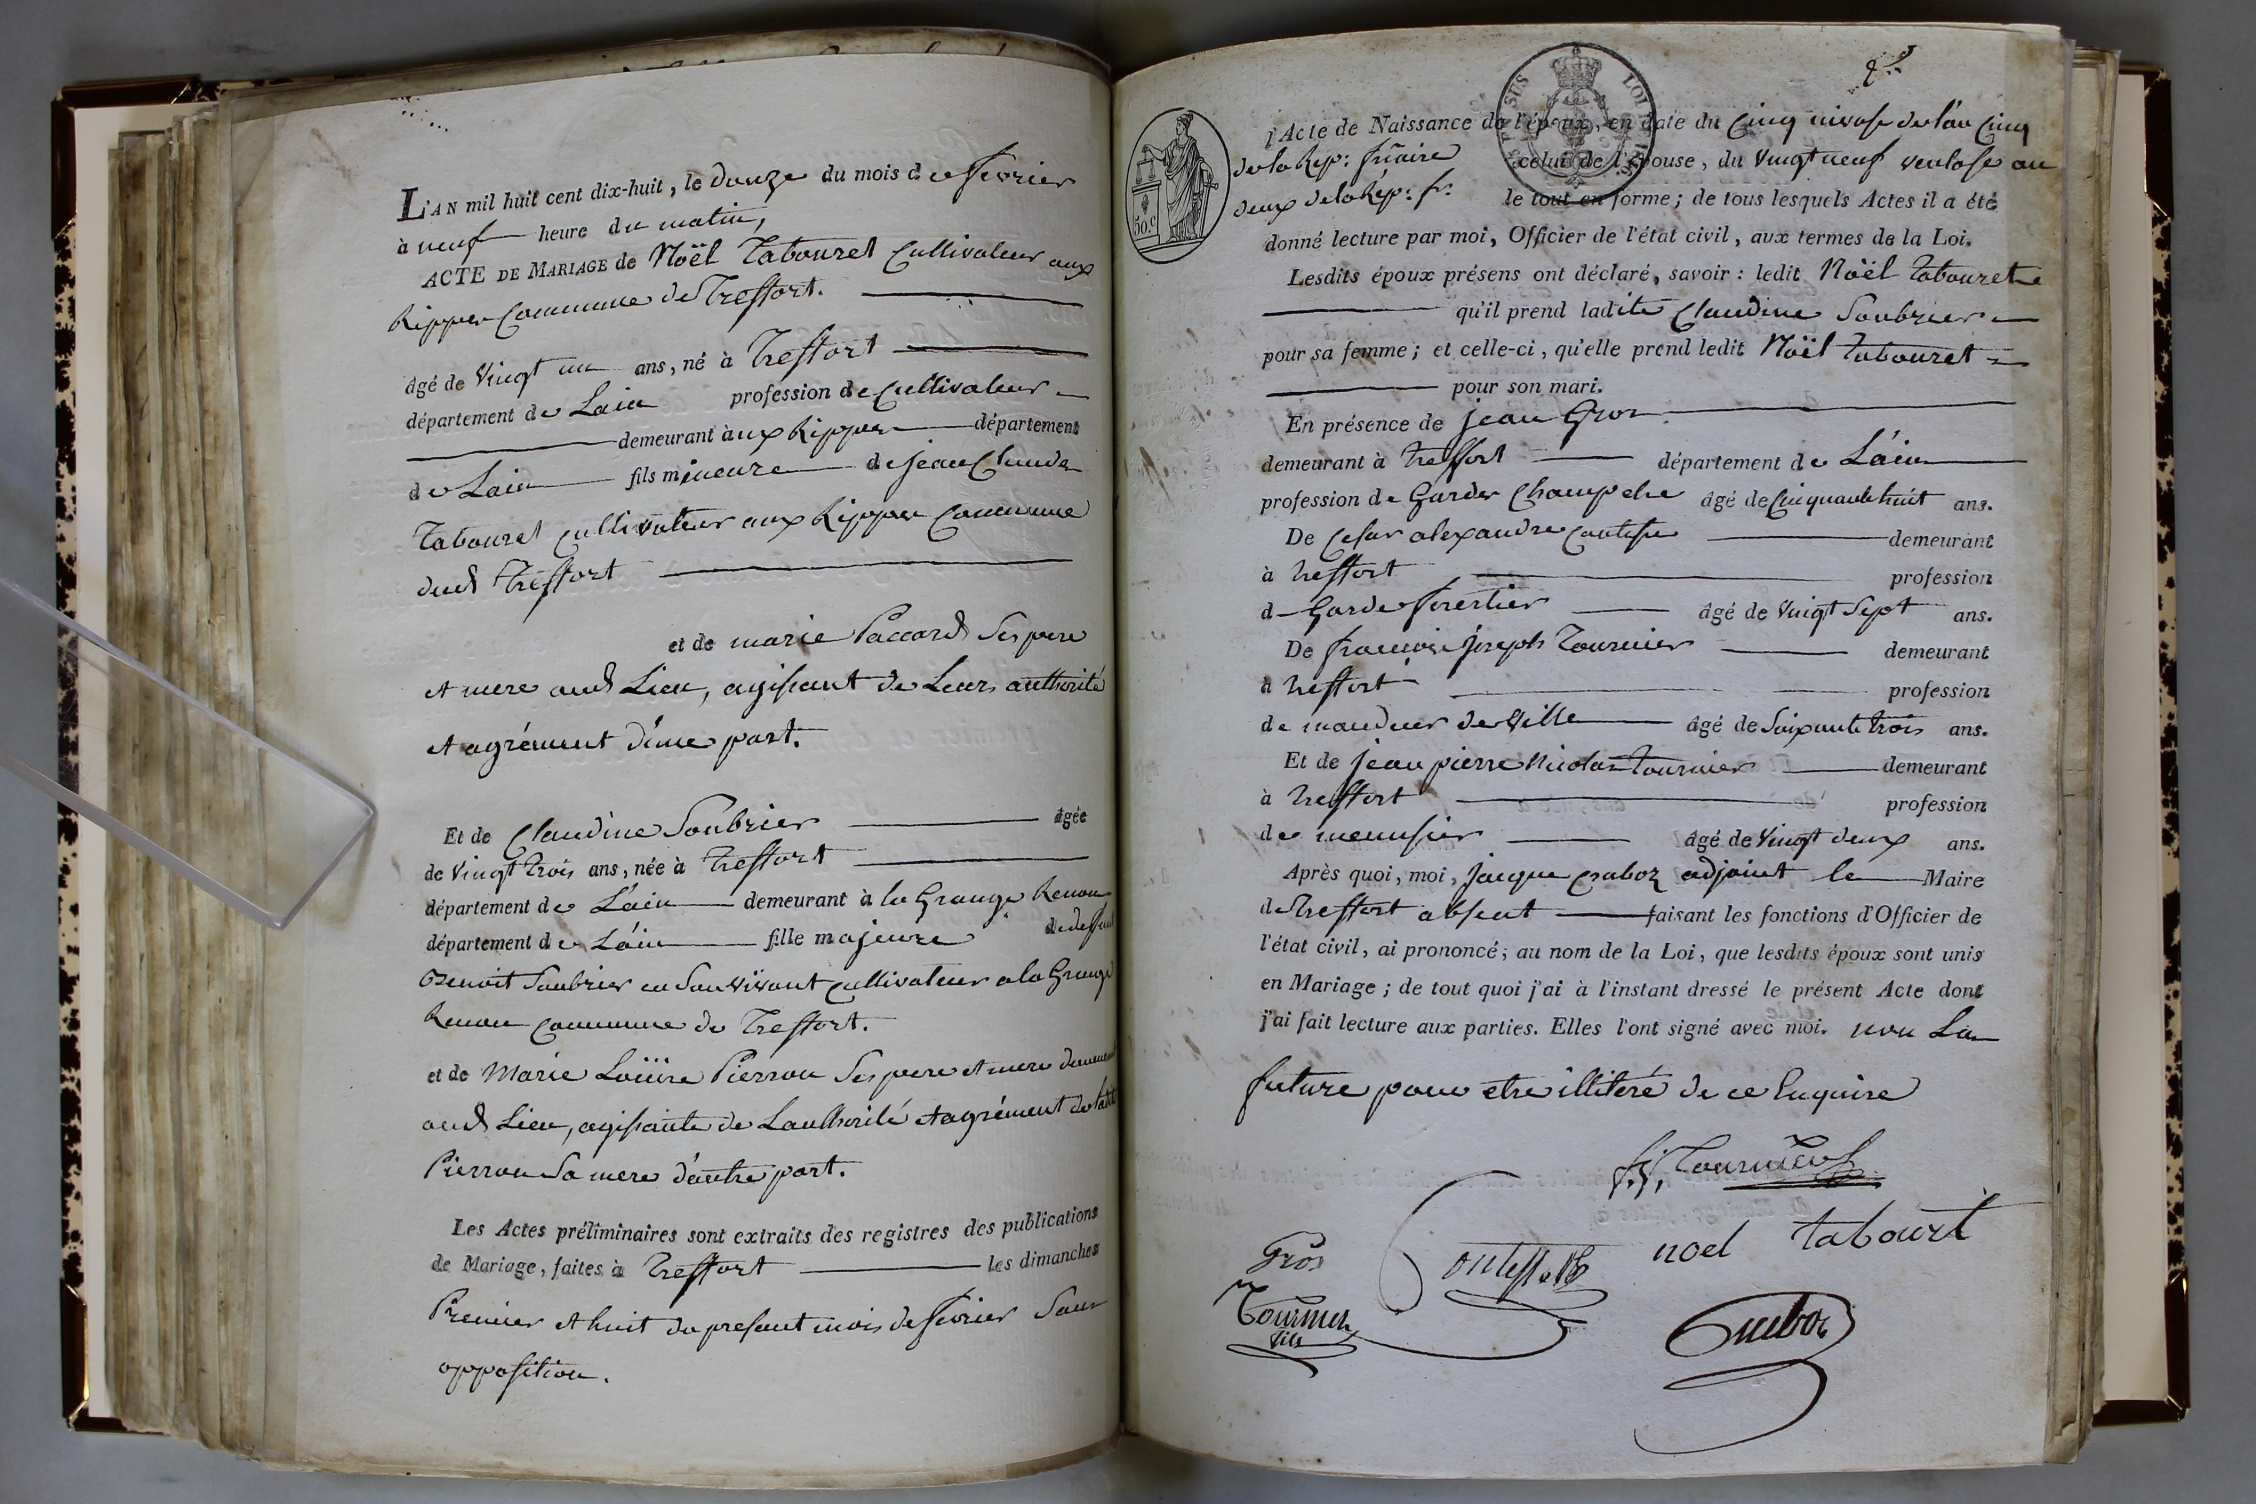 L'AN mil huit cent dix-huit, le douze du mois de fevrier
à neuf heure du matin,
ACTE DE MARIAGE de Noël Tabouret Cultivateur aux
Rippes Commune de Treffort.
âgé de Vingt un ans, né à Treffort
département de Lain profession de Cultivateur
demeurant aux Rippes département
de Lain fils mineure de jean Claude
Tabouret cultivateur aux Rippes Commune
dud Treffort
et de marie Paccard Ses pere
et mere aud Lieu, agissant de Leurs authorité
et agrément d'une part.
Et de Claudine Soubrier âgée
de Vingt trois ans, née à Treffort
département de L'ain demeurant à la Grange Renon
département de L'ain fille majeure de deffunt
Benoit Soubrier en Son vivant cultivateur a la Grange
Renon commune de Treffort.
et de Marie Loüise Pierron Ses pere et mere
aud Lieu, agissante de L'authorité et agrément de ladite
Pierron Sa mere d'autre part.
Les Actes préliminaires sont extraits des registres des publications
de Mariage, faites à Treffort les dimanches
Premier et huit du present mois de fevrier Sans
opposition.
l'Acte de Naissance de l'époux, en date du Cinq nivose de l'an Cinq
de la Rep: celui de l'épouse, du Vingt neuf ventose an
deux de la Rép: fr: le tout en forme; de tous lesquels Actes il a été
50. C
donné lecture par moi, Officier de l'état civil, aux termes de la Loi.
Lesdits époux présens ont déclaré, savoir: ledit Noël Tabouret
qu'il prend ladite Claudine Soubrier
pour sa femme; et celle-ci, qu'elle prend ledit Noël Tabouret
pour son mari.
En présence de jean Gros
demeurant à Treffort département de L'ain
profession de Garde Champetre âgé de Cinquante huit ans.
De Cesar alexandre demeurant
à Treffort profession
d Garde forestier âgé de Vingt Sept ans.
De francois joseph Tournier demeurant
à Treffort profession
de de Ville âgé de Soixante trois ans.
Et de jean pierre Nicolas Tournier demeurant
à Treffort profession
de menusier âgé de Vingt deux ans.
Après quoi, moi, Jacque adjoint le Maire
de Treffort absent faisant les fonctions d'Officier de
l'état civil, ai prononcé, au nom de la Loi, que lesdits époux sont unis
en Mariage; de tout quoi j'ai à l'instant dressé le présent Acte dont
j'ai fait lecture aux parties. Elles l'ont signé avec moi. non La
future pour etre illiteré de ce Enquise
f. j. Tournier
noel tabouret
Gros
Tournier
fils